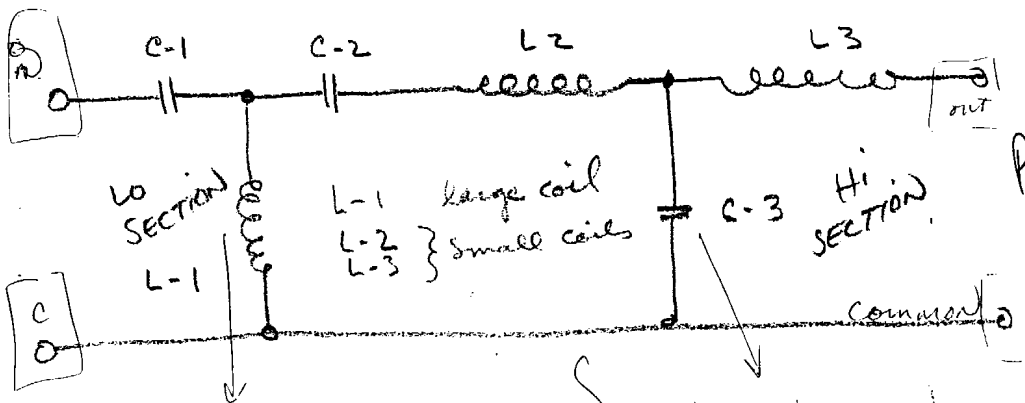 in
C-1
C-2
L2
L3
out
LO
SECTION
L-1
L-1 large coil
L-2 } small coils
L-3
C-3
Hi
SECTION.
C
common